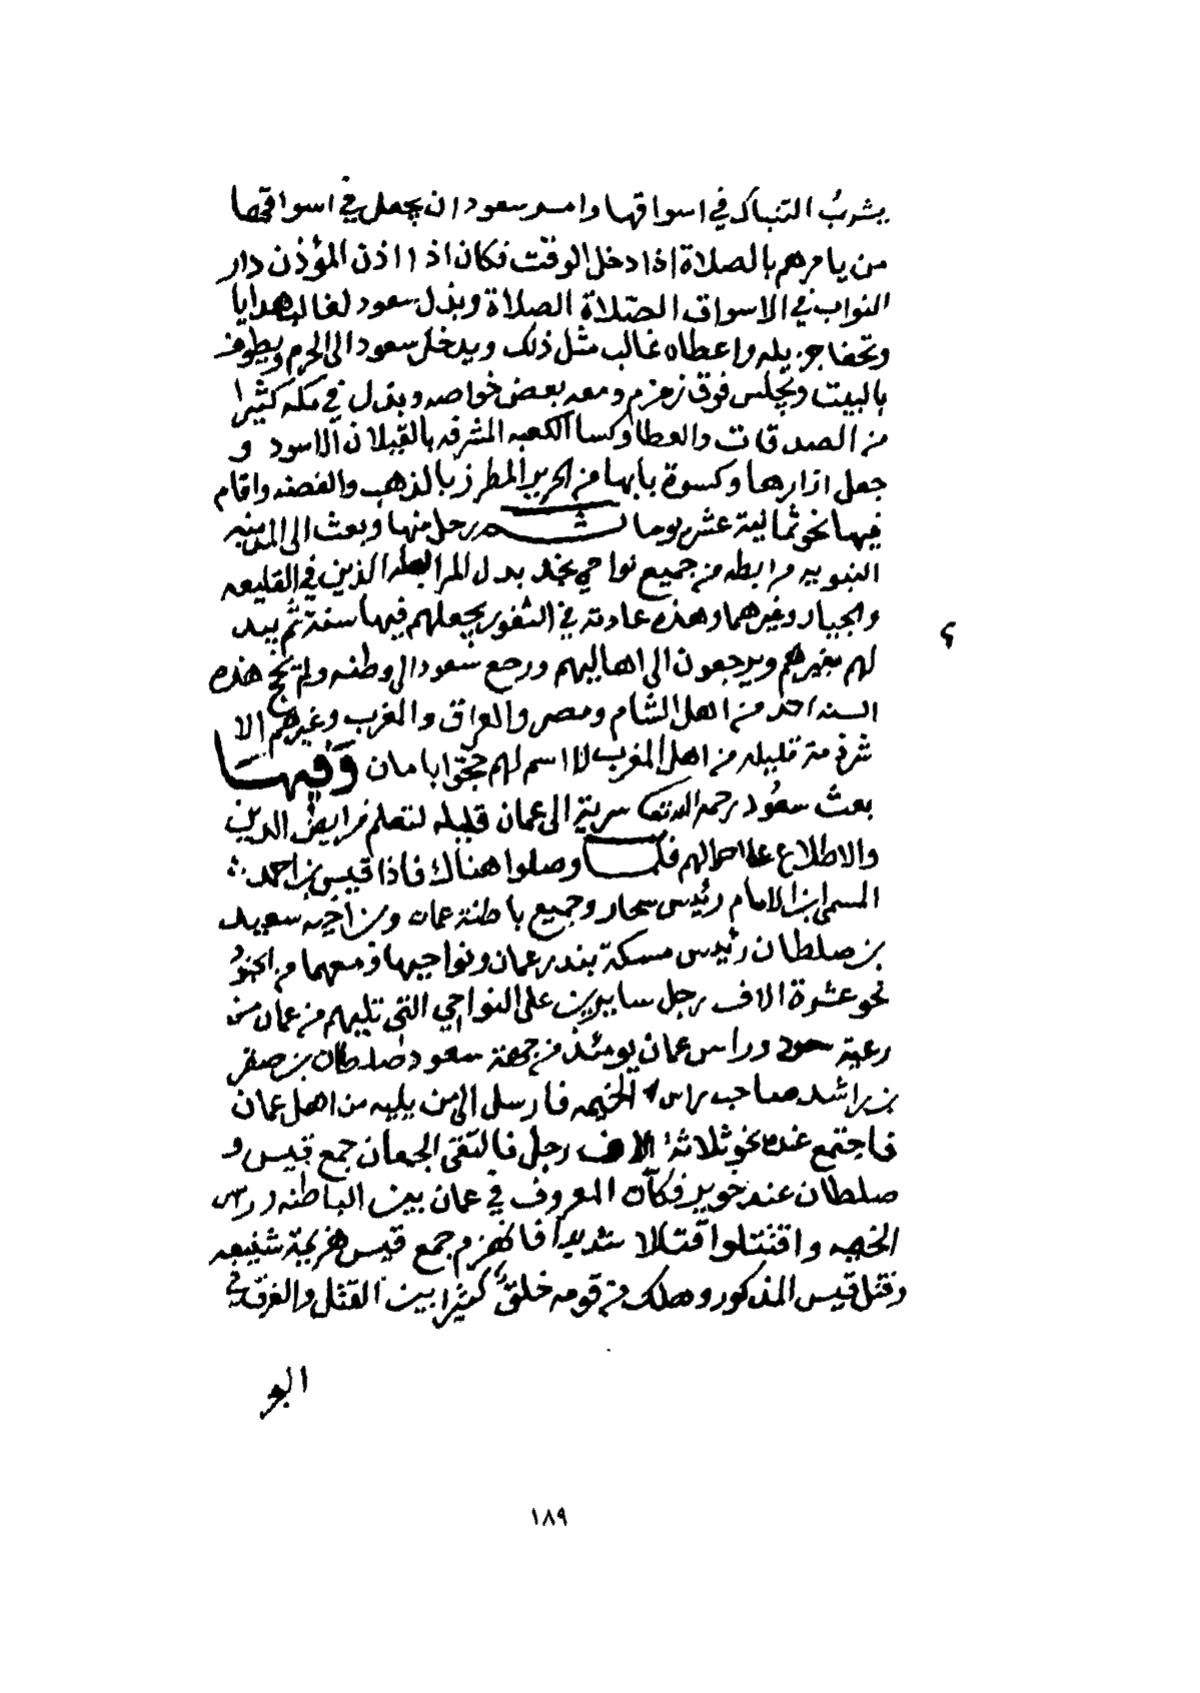 يشربُ التنباك في اسواقها وامر سعود ان يجعل في اسواقها
من يامرهم بالصلاة اذا دخل الوقت فكان اذا اذن المؤذن دار
النواب في الاسواق الصلاة الصلاة وبذل سعود لغالب هدايا
وتحفا جزيله واعطاه غالب مثل ذلك ويدخل سعود الى الحرم ويطوف
بالبيت ويجلس فوق زمزم ومعه بعض خواصه وبذل في مكه كثيرا
من الصدقات والعطا وكسا الكعبه المشرفه بالقيلان الاسود و
جعل ازارها وكسوة بابها من الحرير المطرز بالذهب والفضه واقام
فيها نحو ثمانية عشر يوما ثم رحل منها وبعث الى المدينه
النبويه مرابطه من جميع نواحي نجد بدل المرابطه الذين في القليعه
والجبار وغيرهما وهذه عادته في الثغور يجعلهم فيها سنة ثم يبد
لهم بغيرهم ويرجعون الى اهاليهم ورجع سعود الى وطنه ولم يحج هذه
السنه احد من اهل الشام ومصر والعراق والمغرب وغيرهم الا
شرذمة قليله من اهل المغرب لا اسم لهم حجوا بامان وَفيهَا
بعث سعُود رحمه الله تعا سرية الى عمان قليله لتعلم فرايض الدين
والاطلاع على احوالهم فلما وصلوا هناك فاذا قيس بن احمد
المسمى ابن الامام رئيس سحار وجميع باطنة عمان وبن اخيه سعيد
بن صلطان رئيس مسكة بندر عمان ونواحيها ومعهما من الجنود
نحو عشرة الاف رجل سايرين على النواحي التي تليهم من عمان من
رعية سعود وراس عمان يومئذ من جهة سعود صلطان بن صقر
بن راشد صاحب راس الخيمه فارسل الى من يليه من اهل عمان
فاجتمع عنده نحو ثلاثة الاف رجل فالتقى الجمعان جمع قيس و
صلطان عند خوير فكان المعروف في عمان بين الباطنه وراس
الخيمه واقتتلوا قتالا شديدا فانهزم جمع قيس هزيمة شنيعه
وقتل قيس المذكور وهلك من قومه خلق كثيرا بين القتل والغرق في
البو
١٨٩